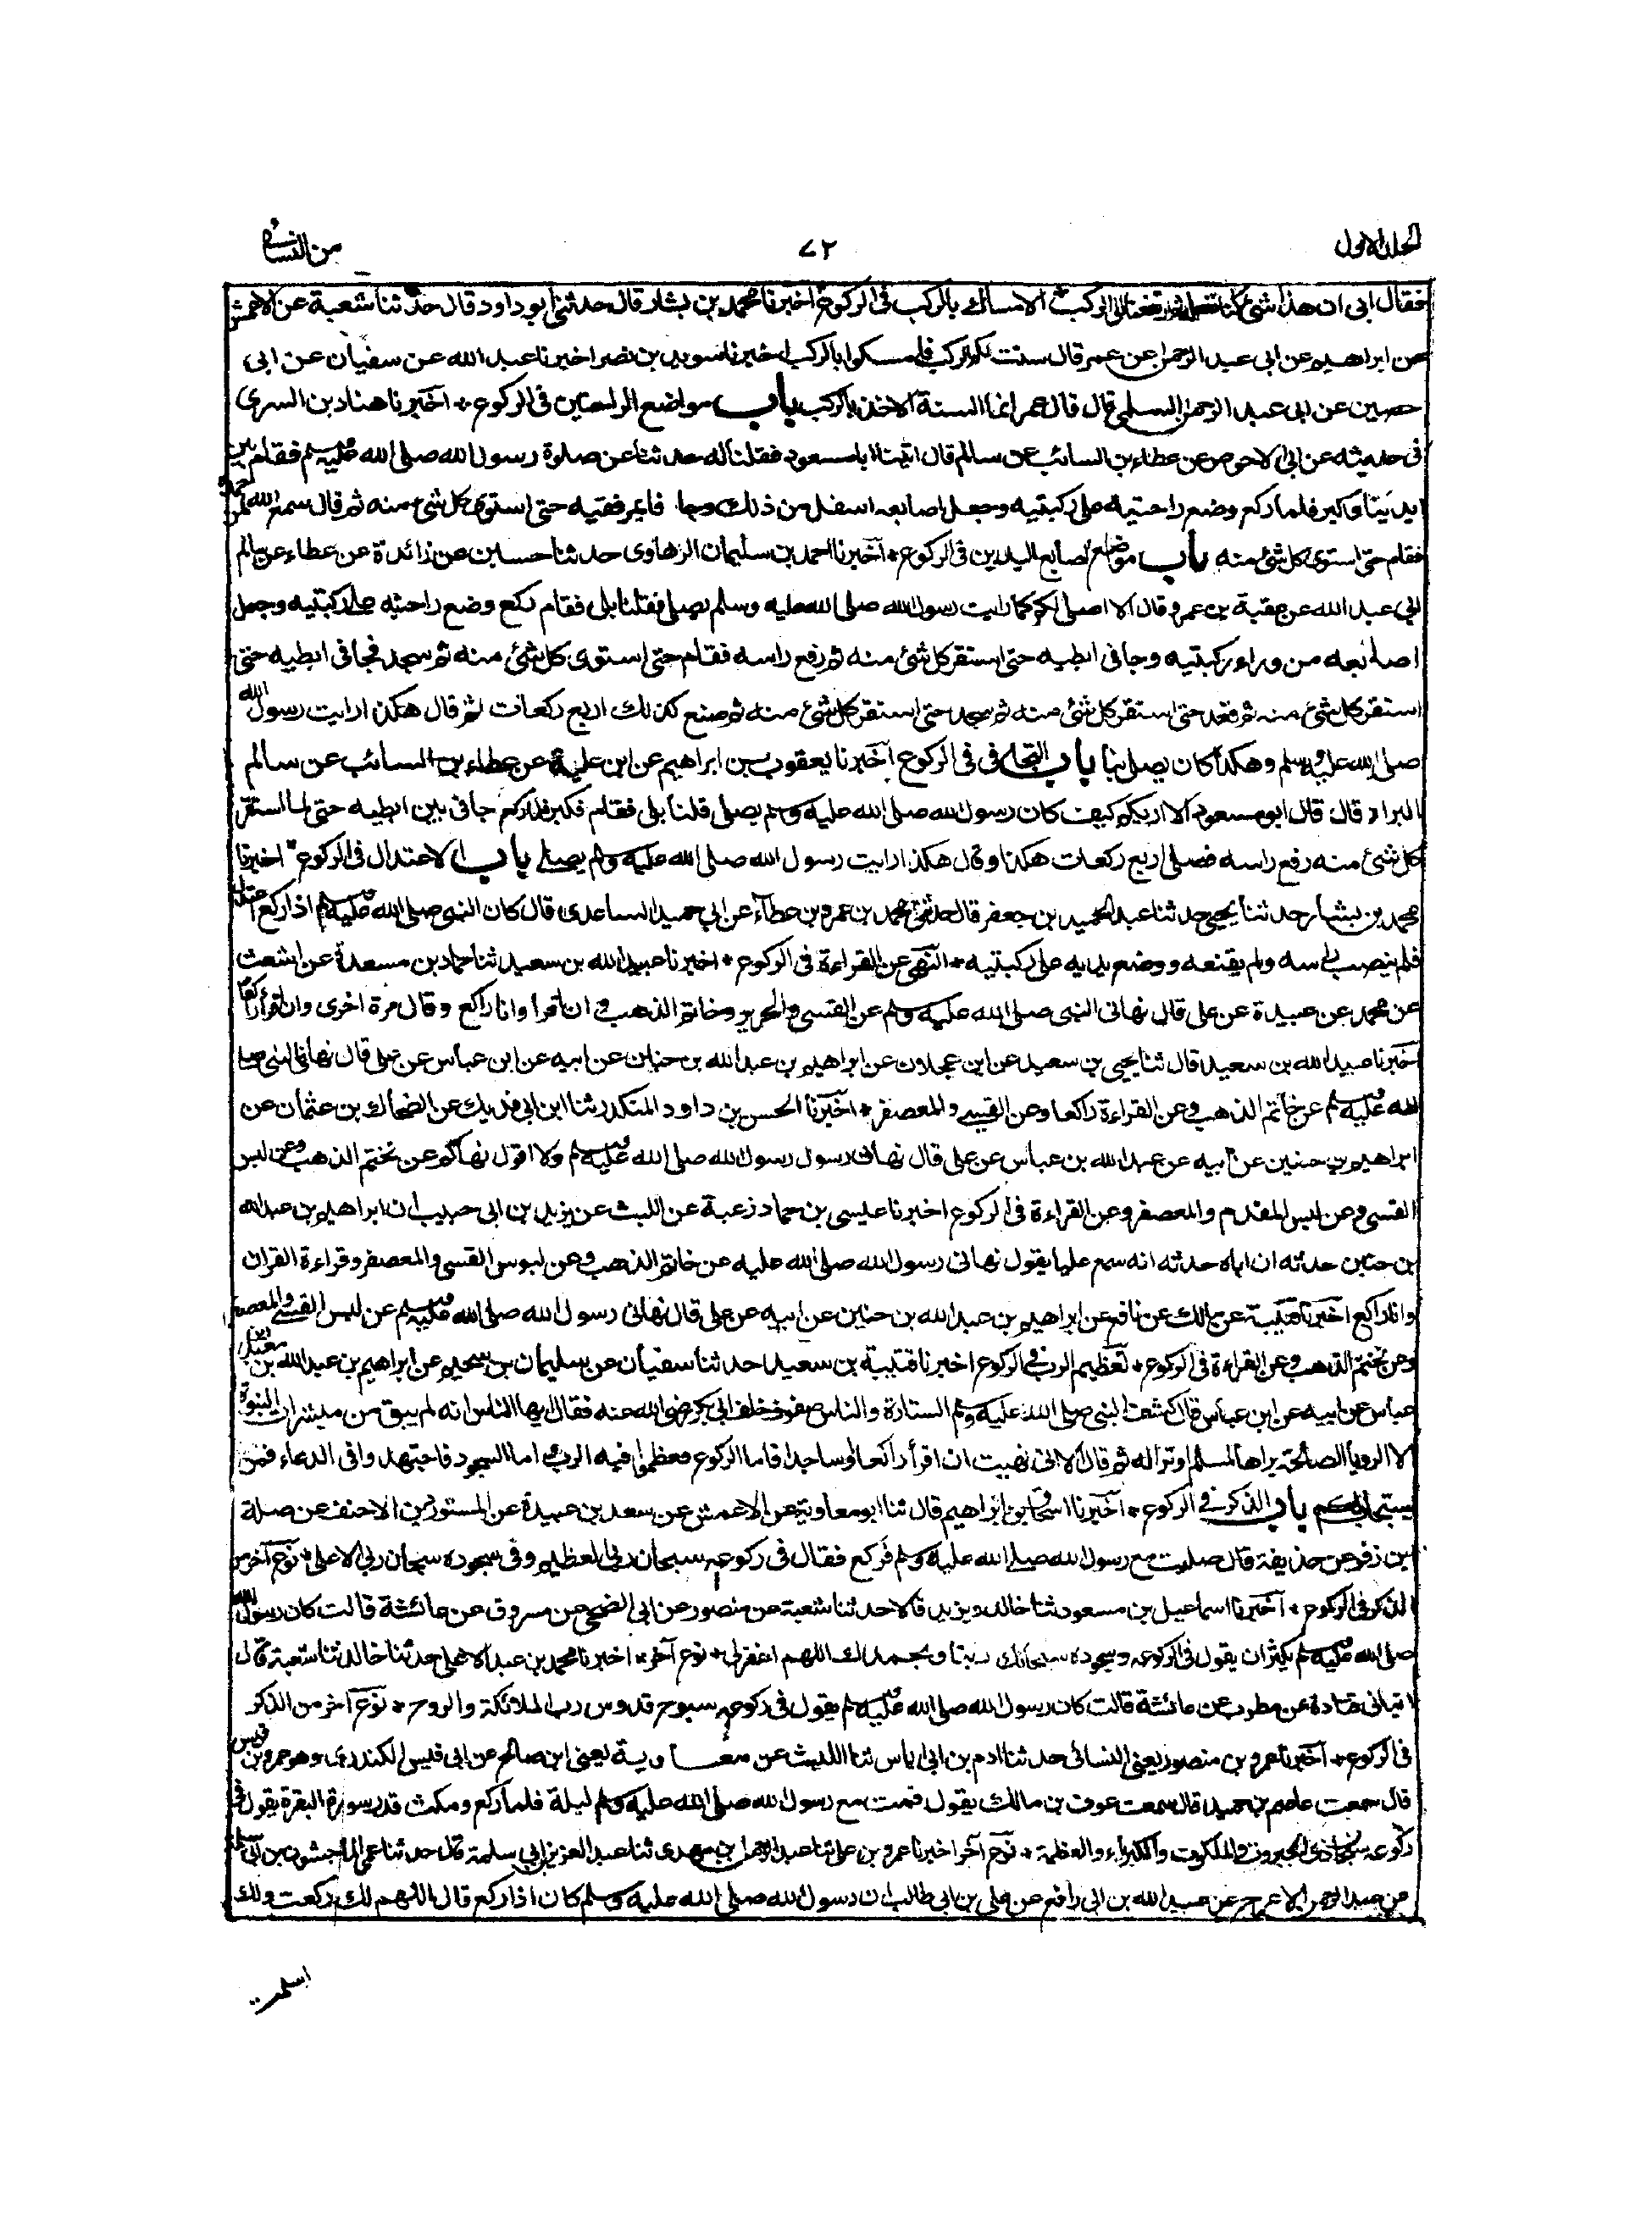 الجلد الاول
٧٢
من النسائى
فقال ابى ان هذا شئ كنا نفعله ثم ارتفعنا الى الركب * الامساك بالركب فى الركوع اخبرنا محمد بن بشار قال حدثنى ابو داود قال حدثنا شعبة عن الاعمش
عن ابراهيم عن ابى عبد الرحمن عن عمر قال سنت لكم الركب فامسكوا بالركب اخبرنا سويد بن نصر اخبرنا عبد الله عن سفيان عن ابى
حصين عن ابى عبد الرحمن السلمى قال قال عمر انما السنة الاخذ بالركب باب مواضع الراحتين فى الركوع * اخبرنا هناد بن السرى
فى حديثه عن ابى الاحوص عن عطاء بن السائب عن سالم قال اتينا ابا مسعود فقلنا له حدثنا عن صلوة رسول الله صلى الله عليه وسلم فقام بين
ايدينا وكبر فلما ركع وضع راحتيه على ركبتيه وجعل اصابعه اسفل من ذلك وجافا بمرفقيه حتى استوى كل شئ منه ثم قال سمع الله لمن حمده
فقام حتى استوى كل شئ منه باب مواضع اصابع اليدين فى الركوع * اخبرنا احمد بن سليمان الرهاوى حدثنا حسين عن زائدة عن عطاء عن سالم
ابى عبد الله عن عقبة بن عمرو قال الا اصلى لكم كما رايت رسول الله صلى الله عليه وسلم يصلى فقلنا بلى فقام ركع وضع راحتيه على ركبتيه وجعل
اصابعه من وراء ركبتيه وجافى ابطيه حتى استقر كل شئ منه ثم رفع راسه فقام حتى استوى كل شئ منه ثم سجد فجافى ابطيه حتى
استقر كل شئ منه ثم قعد حتى استقر كل شئ منه ثم سجد حتى استقر كل شئ منه ثم صنع كذلك اربع ركعات ثم قال هكذا رايت رسول الله
صلى الله عليه وسلم وهكذا كان يصلى بنا باب التجافى فى الركوع اخبرنا يعقوب بن ابراهيم عن ابن علية عن عطاء بن السائب عن سالم
البراد قال قال ابو مسعود الا اريكم كيف كان رسول الله صلى الله عليه وسلم يصلى قلنا بلى فقام فكبر فلما ركع جافى بين ابطيه حتى لما استقر
كل شئ منه رفع راسه فصلى اربع ركعات هكذا وقال هكذا رايت رسول الله صلى الله عليه وسلم يصلى باب الاعتدال فى الركوع * اخبرنا
محمد بن بشار حدثنا يحيى حدثنا عبد الحميد بن جعفر قال حدثنى محمد بن عمرو بن عطاء عن ابى حميد الساعدى قال كان النبى صلى الله عليه وسلم اذا ركع اعتدل
فلم ينصب راسه ولم يقنعه ووضع يديه على ركبتيه * النهى عن القراءة فى الركوع * اخبرنا عبيد الله بن سعيد ثنا حماد بن مسعدة عن اشعث
عن محمد عن عبيدة عن على قال نهانى النبى صلى الله عليه وسلم عن القسى والحرير وخاتم الذهب و ان اقرا وانا راكع وقال مرة اخرى وان اقرأ راكعا
اخبرنا عبيد الله بن سعيد قال ثنا يحيى بن سعيد عن ابن عجلان عن ابراهيم بن عبد الله بن حنين عن ابيه عن ابن عباس عن على قال نهانى النبى صلى
الله عليه وسلم عن خاتم الذهب وعن القراءة راكعا وعن القسى والمعصفر * اخبرنا الحسن بن داود المنكدر ثنا ابن ابى فديك عن الضحاك بن عثمان عن
ابراهيم بن حنين عن ابيه عن عبد الله بن عباس عن على قال نهانى رسول رسول الله صلى الله عليه وسلم ولا اقول نهاكم عن تختم الذهب وعن لبس
القسى وعن لبس المفدم والمعصفر وعن القراءة فى الركوع اخبرنا عيسى بن حماد زغبة عن الليث عن يزيد بن ابى حبيب ان ابراهيم بن عبد الله
بن حنين حدثه ان اباه حدثه انه سمع عليا يقول نهانى رسول الله صلى الله عليه عن خاتم الذهب وعن لبوس القسى والمعصفر وقراءة القران
وانا راكع اخبرنا قتيبة عن مالك عن نافع عن ابراهيم بن عبد الله بن حنين عن ابيه عن على قال نهانى رسول الله صلى الله عليه وسلم عن لبس القسى والمعصفر
وعن تختم الذهب وعن القراءة فى الركوع * تعظيم الرب فى الركوع اخبرنا قتيبة بن سعيد حدثنا سفيان عن سليمان بن سحيم عن ابراهيم بن عبد الله بن معبد بن
عباس عن ابيه عن ابن عباس قال كشف النبى صلى الله عليه وسلم الستارة والناس صفوف خلف ابى بكر رضى الله عنه فقال ايها الناس انه لم يبق من مبشرات النبوة
الا الرويا الصالحة يراها المسلم او ترا له ثم قال الا انى نهيت ان اقرأ راكعا او ساجدا فاما الركوع فعظموا فيه الرب واما السجود فاجتهدوا فى الدعاء فمن
يستجاب لكم باب الذكر فى الركوع * اخبرنا اسحاق بن ابراهيم قال ثنا ابو معاوية عن الاعمش عن سعد بن عبيدة عن المستورد بن الاحنف عن صلة
ابن زفر عن حذيفة قال صليت مع رسول الله صلى الله عليه وسلم فركع فقال فى ركوعه سبحان ربى العظيم وفى سجوده سبحان ربى الاعلى * نوع آخر من
الذكر فى الركوع * اخبرنا اسماعيل بن مسعود ثنا خالد ويزيد قالا حدثنا شعبة عن منصور عن ابى الضحى عن مسروق عن عائشة قالت كان رسول الله
صلى الله عليه وسلم يكثر ان يقول فى ركوعه وسجوده سبحانك ربنا وبحمدك اللهم اغفرلى * نوع آخر * اخبرنا محمد بن عبد الاعلى حدثنا خالد ثنا شعبة قال
انبانى قتادة عن مطرف عن عائشة قالت كان رسول الله صلى الله عليه وسلم يقول فى ركوعه سبوح قدوس رب الملائكة والروح * نوع آخر من الذكر
فى الركوع * اخبرنا عمرو بن منصور يعنى النسائى حدثنا ادم بن ابى اياس ثنا الليث عن معاوية يعنى ابن صالح عن ابى قيس الكندى وهو عمرو بن قيس
قال سمعت عاصم بن حميد قال سمعت عوف بن مالك يقول قمت مع رسول الله صلى الله عليه وسلم ليلة فلما ركع ومكث قدر سورة البقرة يقول فى
ركوعه سبحان ذى الجبروت والملكوت والكبرياء والعظمة * نوع آخر اخبرنا عمرو بن على ثنا عبد الرحمن بن مهدى ثنا عبد العزيز بن ابى سلمة قال حدثنا عمى الماجشون بن ابى سلمة
عن عبد الرحمن الاعرج عن عبيد الله بن ابى رافع عن على بن ابى طالب ان رسول الله صلى الله عليه وسلم كان اذا ركع قال اللهم لك ركعت ولك
اسلمت